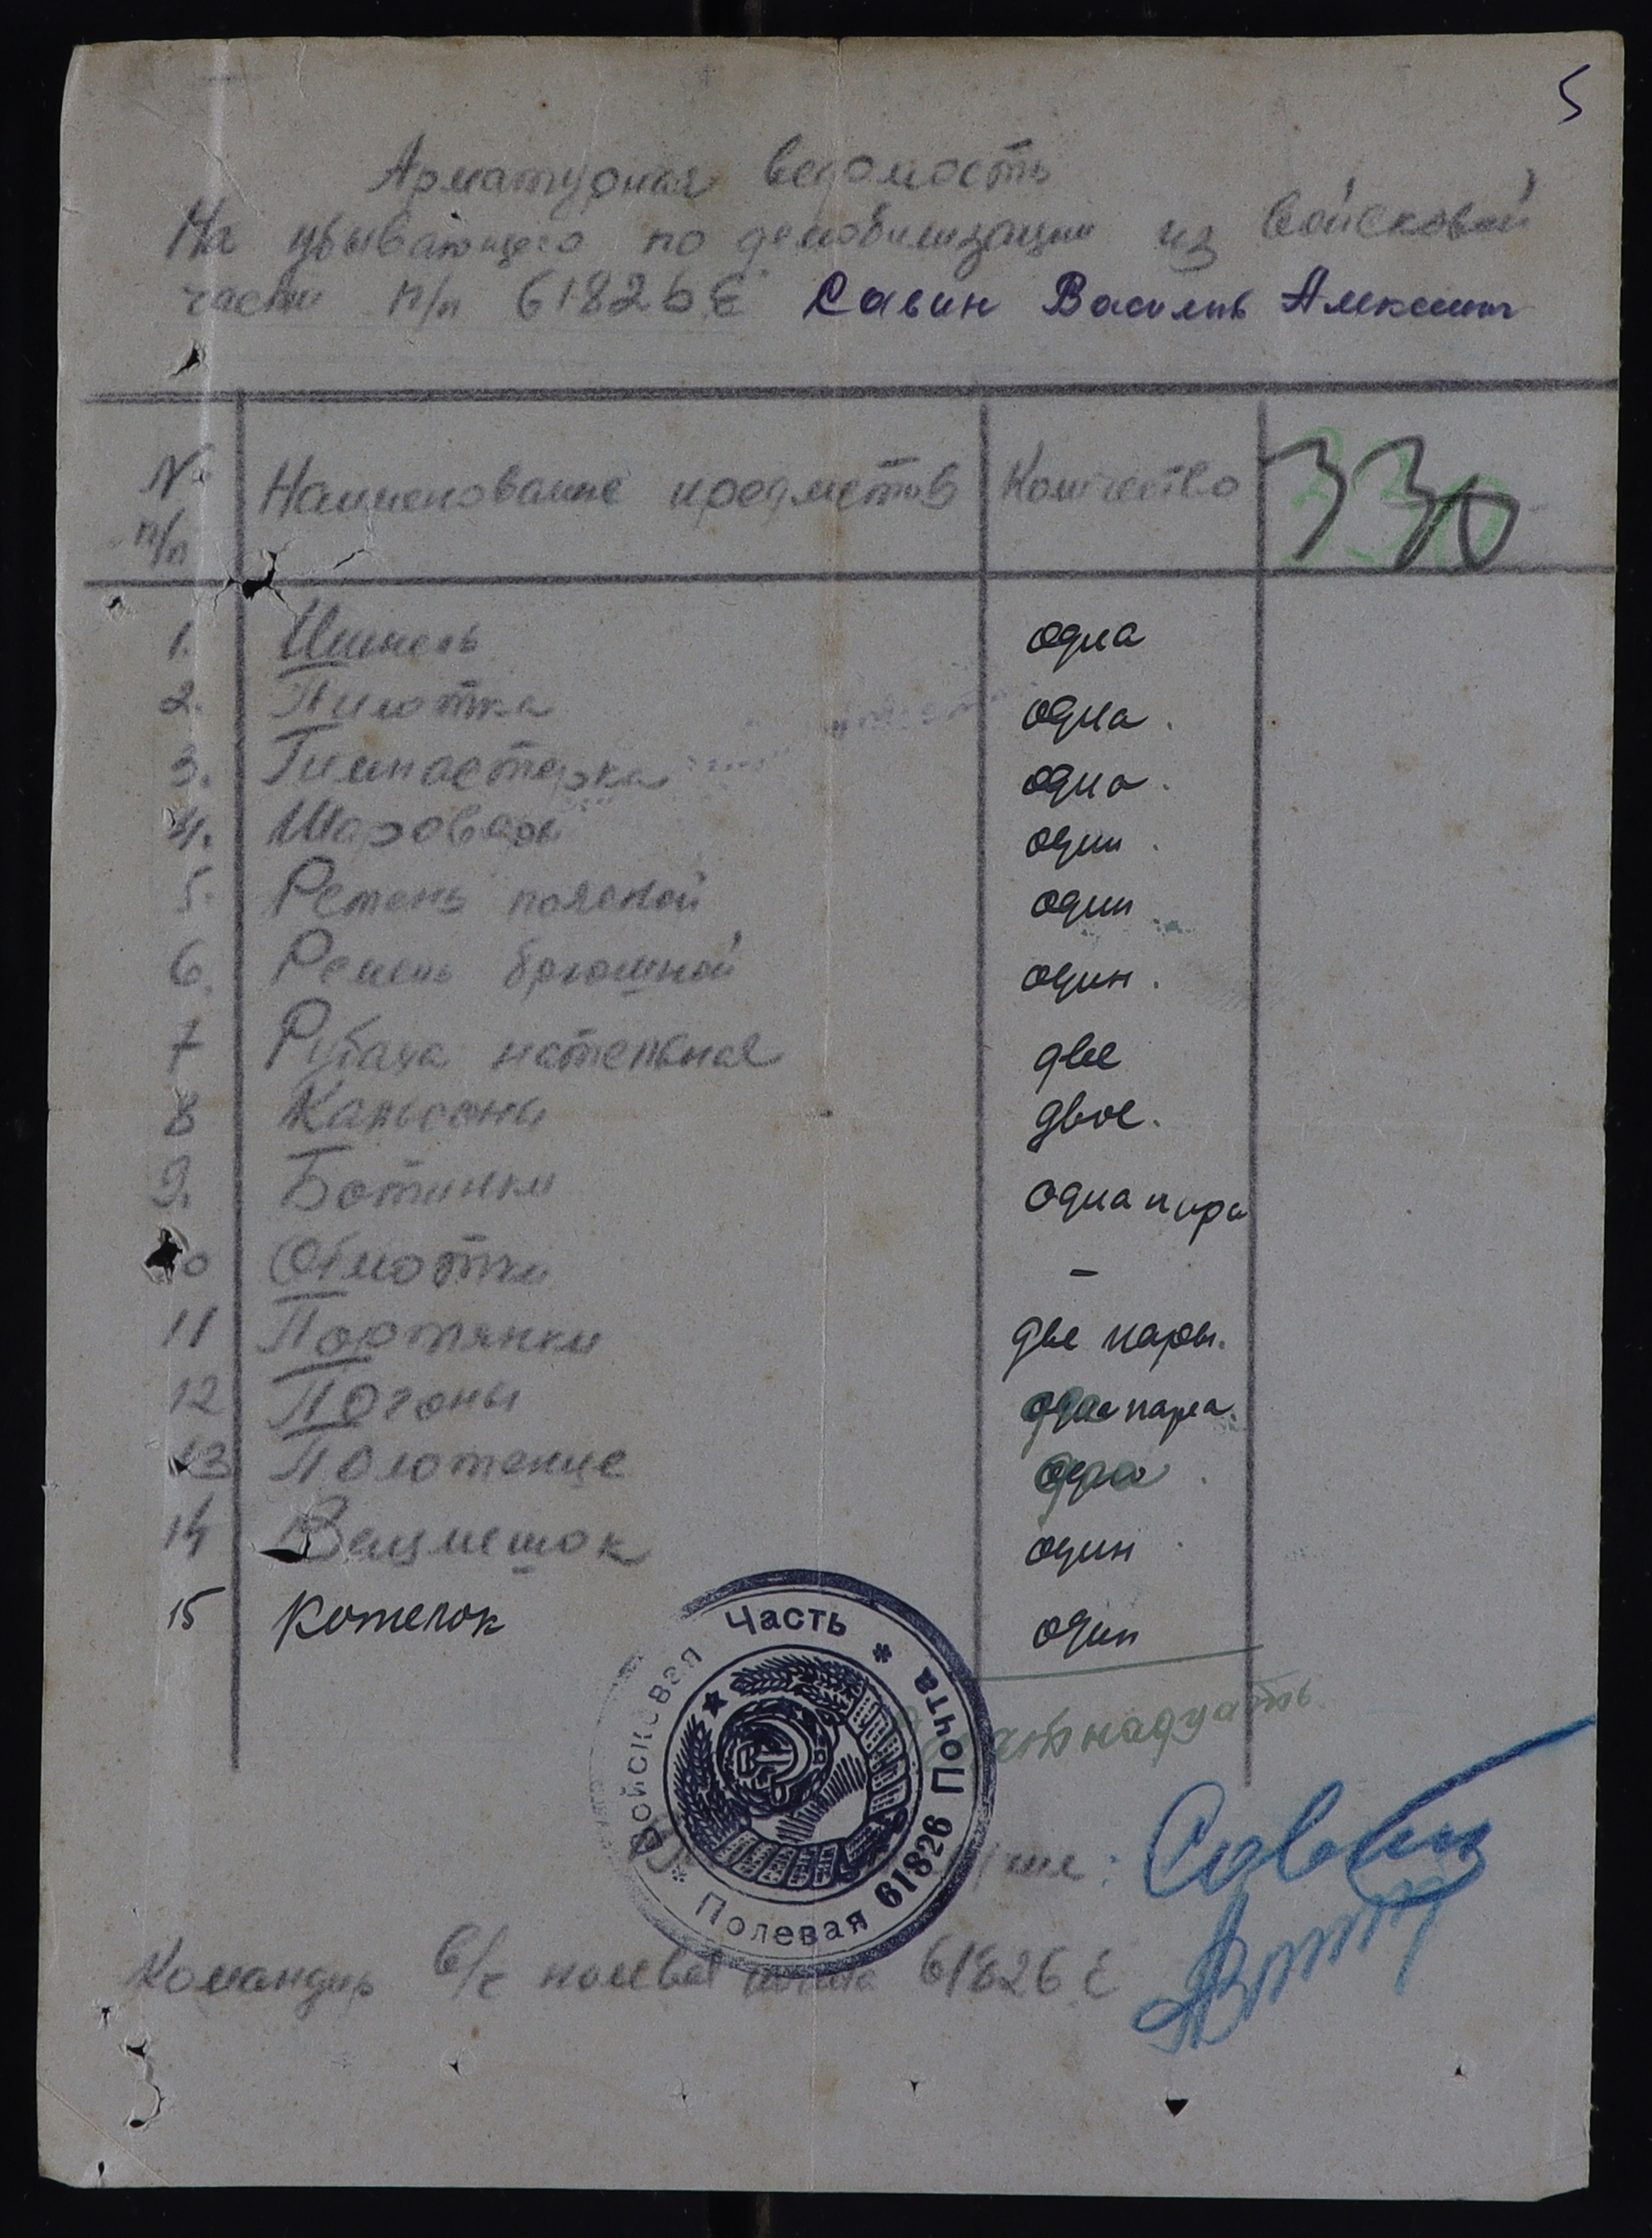 5
Арматурная ведомость
На убывающего по демобилизации из войсковой
части п/п 61826 Е Савин Василь Алексеич
№ п/п Наименование предметов Количество 330
1. Шинель одна
2. Пилотка одна.
3. Гимнастерка одна.
4. Шаровары один.
5. Ремень поясной один
6. Ремень брючной один.
7 Рубаха нательная две
8 Кальсоны двое.
9. Ботинки одна пара
10 Обмотки –
11 Портянки две пары.
12 Погоны одна пара.
13 Полотенце
14 Вещмешок один
15 Котелок один
Войсковая Часть * Полевая Почта 61826 *
Савин
Командир в/ч полевая почта 61826 Е